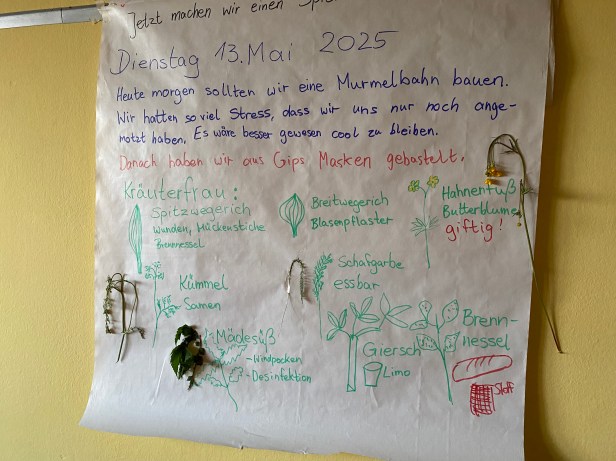 Jetzt machen wir einen
Dienstag 13. Mai 2025
Heute morgen sollten wir eine Murmelbahn bauen.
Wir hatten so viel Stress, dass wir uns nur noch ange-
motzt haben. Es wäre besser gewesen cool zu bleiben.
Danach haben wir aus Gips Masken gebastelt.
Kräuterfrau:
Spitzwegerich
Wunden, Mückenstiche
Brennessel
Breitwegerich
Blasenpflaster
Hahnenfuß
Butterblume
giftig!
Kümmel
Samen
Schafgarbe
essbar
Mädesüß
- Windpocken
- Desinfektion
Giersch
Limo
Brenn-
nessel
Stoff